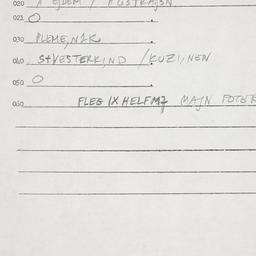 020 EJDEM / AUSTRAJSN
021 O
030 PLEME,NIK
040 SƗVESTERK,ND / KUZI,NEN
050 O
060 FLEG IX HELFM7 MAJN FOTER